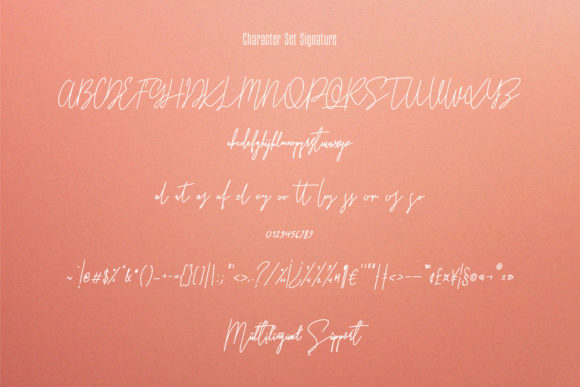 Character Set Signature
ABCDEFGHIJKLMNOPQRSTUVWXYZ
abcdefghijklmnopqrstuvwxyz
al at as af el ey ov tt ly ss or os so
0123456789
Multilingual Support